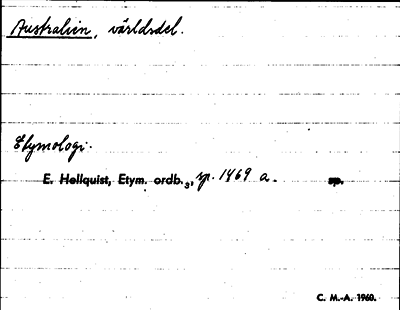 Australien, världsdel.
Etymologi.
E. Hellquist, Etym. ordb.3, sp. 1469 a. sp.
C. M.-A. 1960.